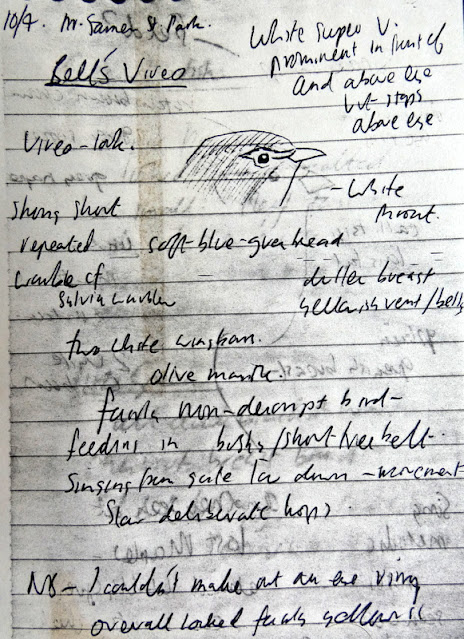 10/4. Mt. James St. Park.
Bell's Vireo
White super V.
prominent in front of
and above eye
but stops
above eye
Vireo-look.
- White
throat.
Strong short
repeated soft-blue-grey head
warble cf duller breast
Sylvia warbler yellowish vent/belly
two white wingbars.
olive mantle.
fairly non-descript bird-
feeding in bushy/short tree belt.
Singing from quite low down - movement
slow deliberate hops.
NB - I couldn't make out an eye ring
overall looked fairly yellowish